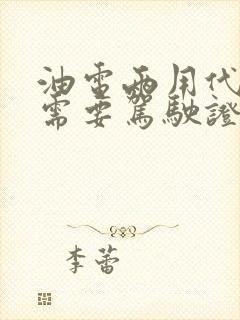 油電两用代
需要駕駛證
李蕾